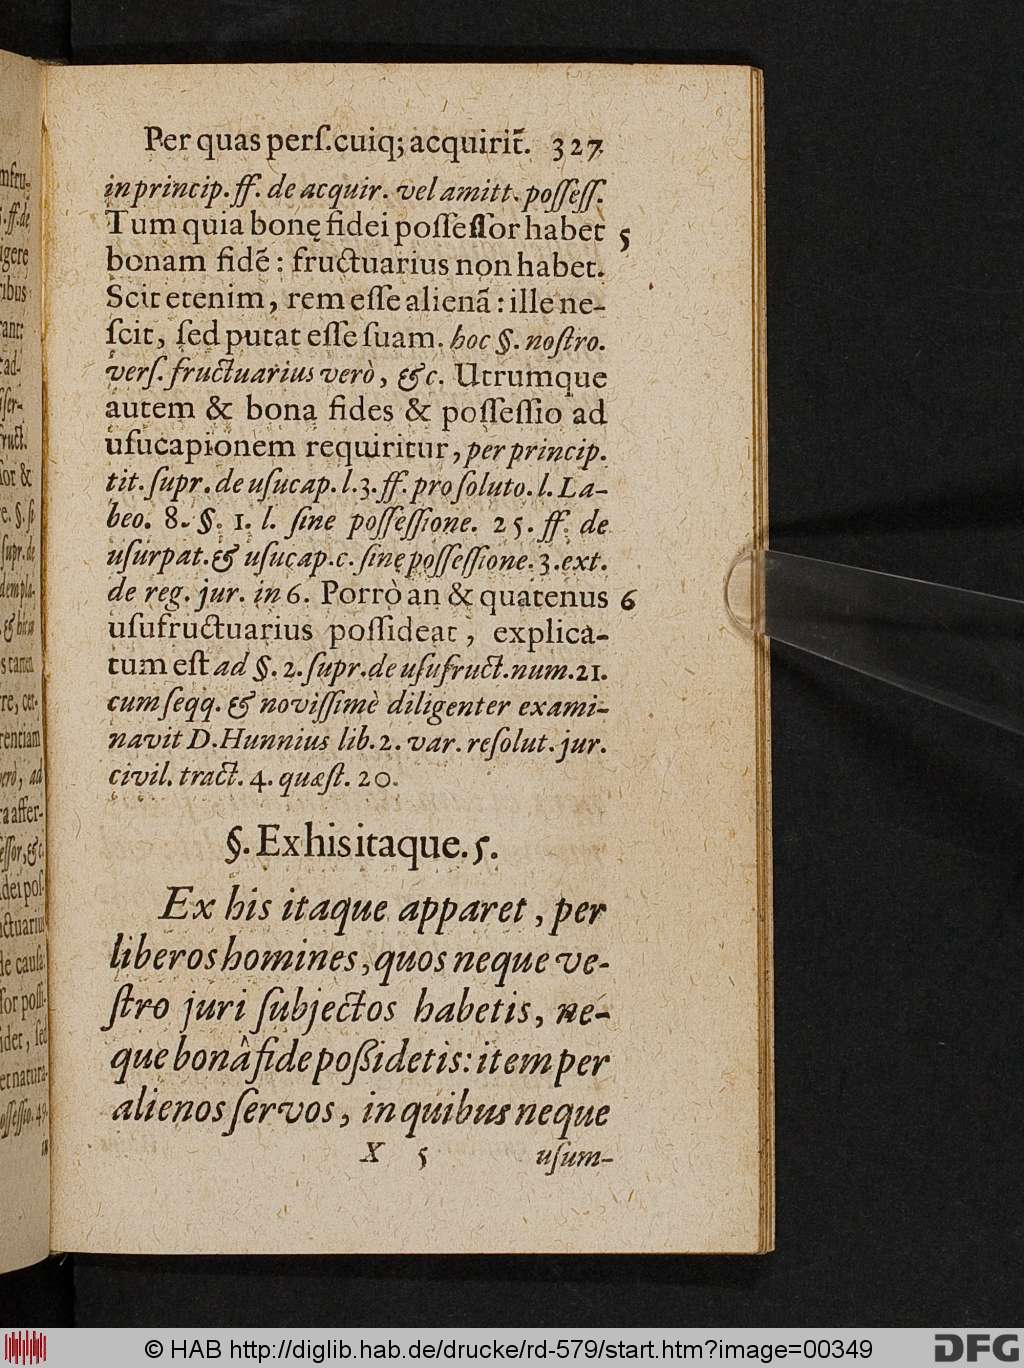 Per quas perſ. cuiq; acquirit̃. 327
in princip. ff. de acquir. vel amitt. poſſeſſ.
Tum quia bonę fidei poſſeſſor habet 5
bonam fidẽ: fructuarius non habet.
Scit etenim, rem eſſe alienã: ille ne-
ſcit, ſed putat eſſe ſuam. hoc §. noſtro.
verſ. fructuarius verò, &c. Utrumque
autem & bona fides & poſſeſſio ad
uſucapionem requiritur, per princip.
tit. ſupr. de uſucap. l. 3. ff. pro ſoluto. l. La-
beo. 8. §. 1. l. ſine poſſeſſione. 25. ff. de
uſurpat. & uſucap. c. ſinę poſſeſſione. 3. ext.
de reg. jur. in 6. Porrò an & quatenus 6
uſufructuarius poſſideat, explica-
tum eſt ad §. 2. ſupr. de uſufruct. num. 21.
cum ſeqq. & noviſſimè diligenter exami-
navit D. Hunnius lib. 2. var. reſolut. jur.
civil. tract. 4. quæſt. 20.
§. Ex his itaque. 5.
Ex his itaque apparet, per
liberos homines, quos neque ve-
ſtro juri ſubjectos habetis, ne-
que bonâ fide poßidetis: item per
alienos ſervos, in quibus neque
X 5 uſum-
© HAB http://diglib.hab.de/drucke/rd-579/start.htm?image=00349
DFG